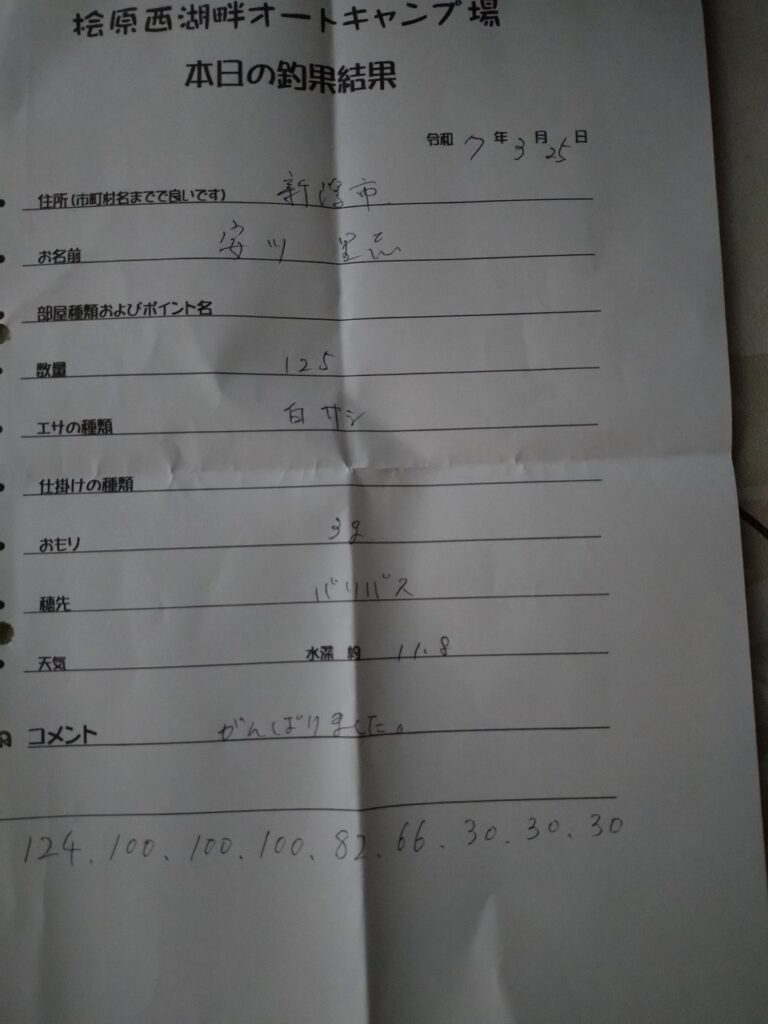 桧原西湖畔オートキャンプ場
本日の釣果結果
令和 7 年 3 月 25 日
住所(市町村名までで良いです) 新潟市
お名前 安
部屋種類およびポイント名
数量 125
エサの種類 白サシ
仕掛けの種類
おもり 3g
穂先 バリバス
天気 水深 約 11.8
コメント がんばりました。
124. 100. 100. 100. 82. 66. 30. 30. 30